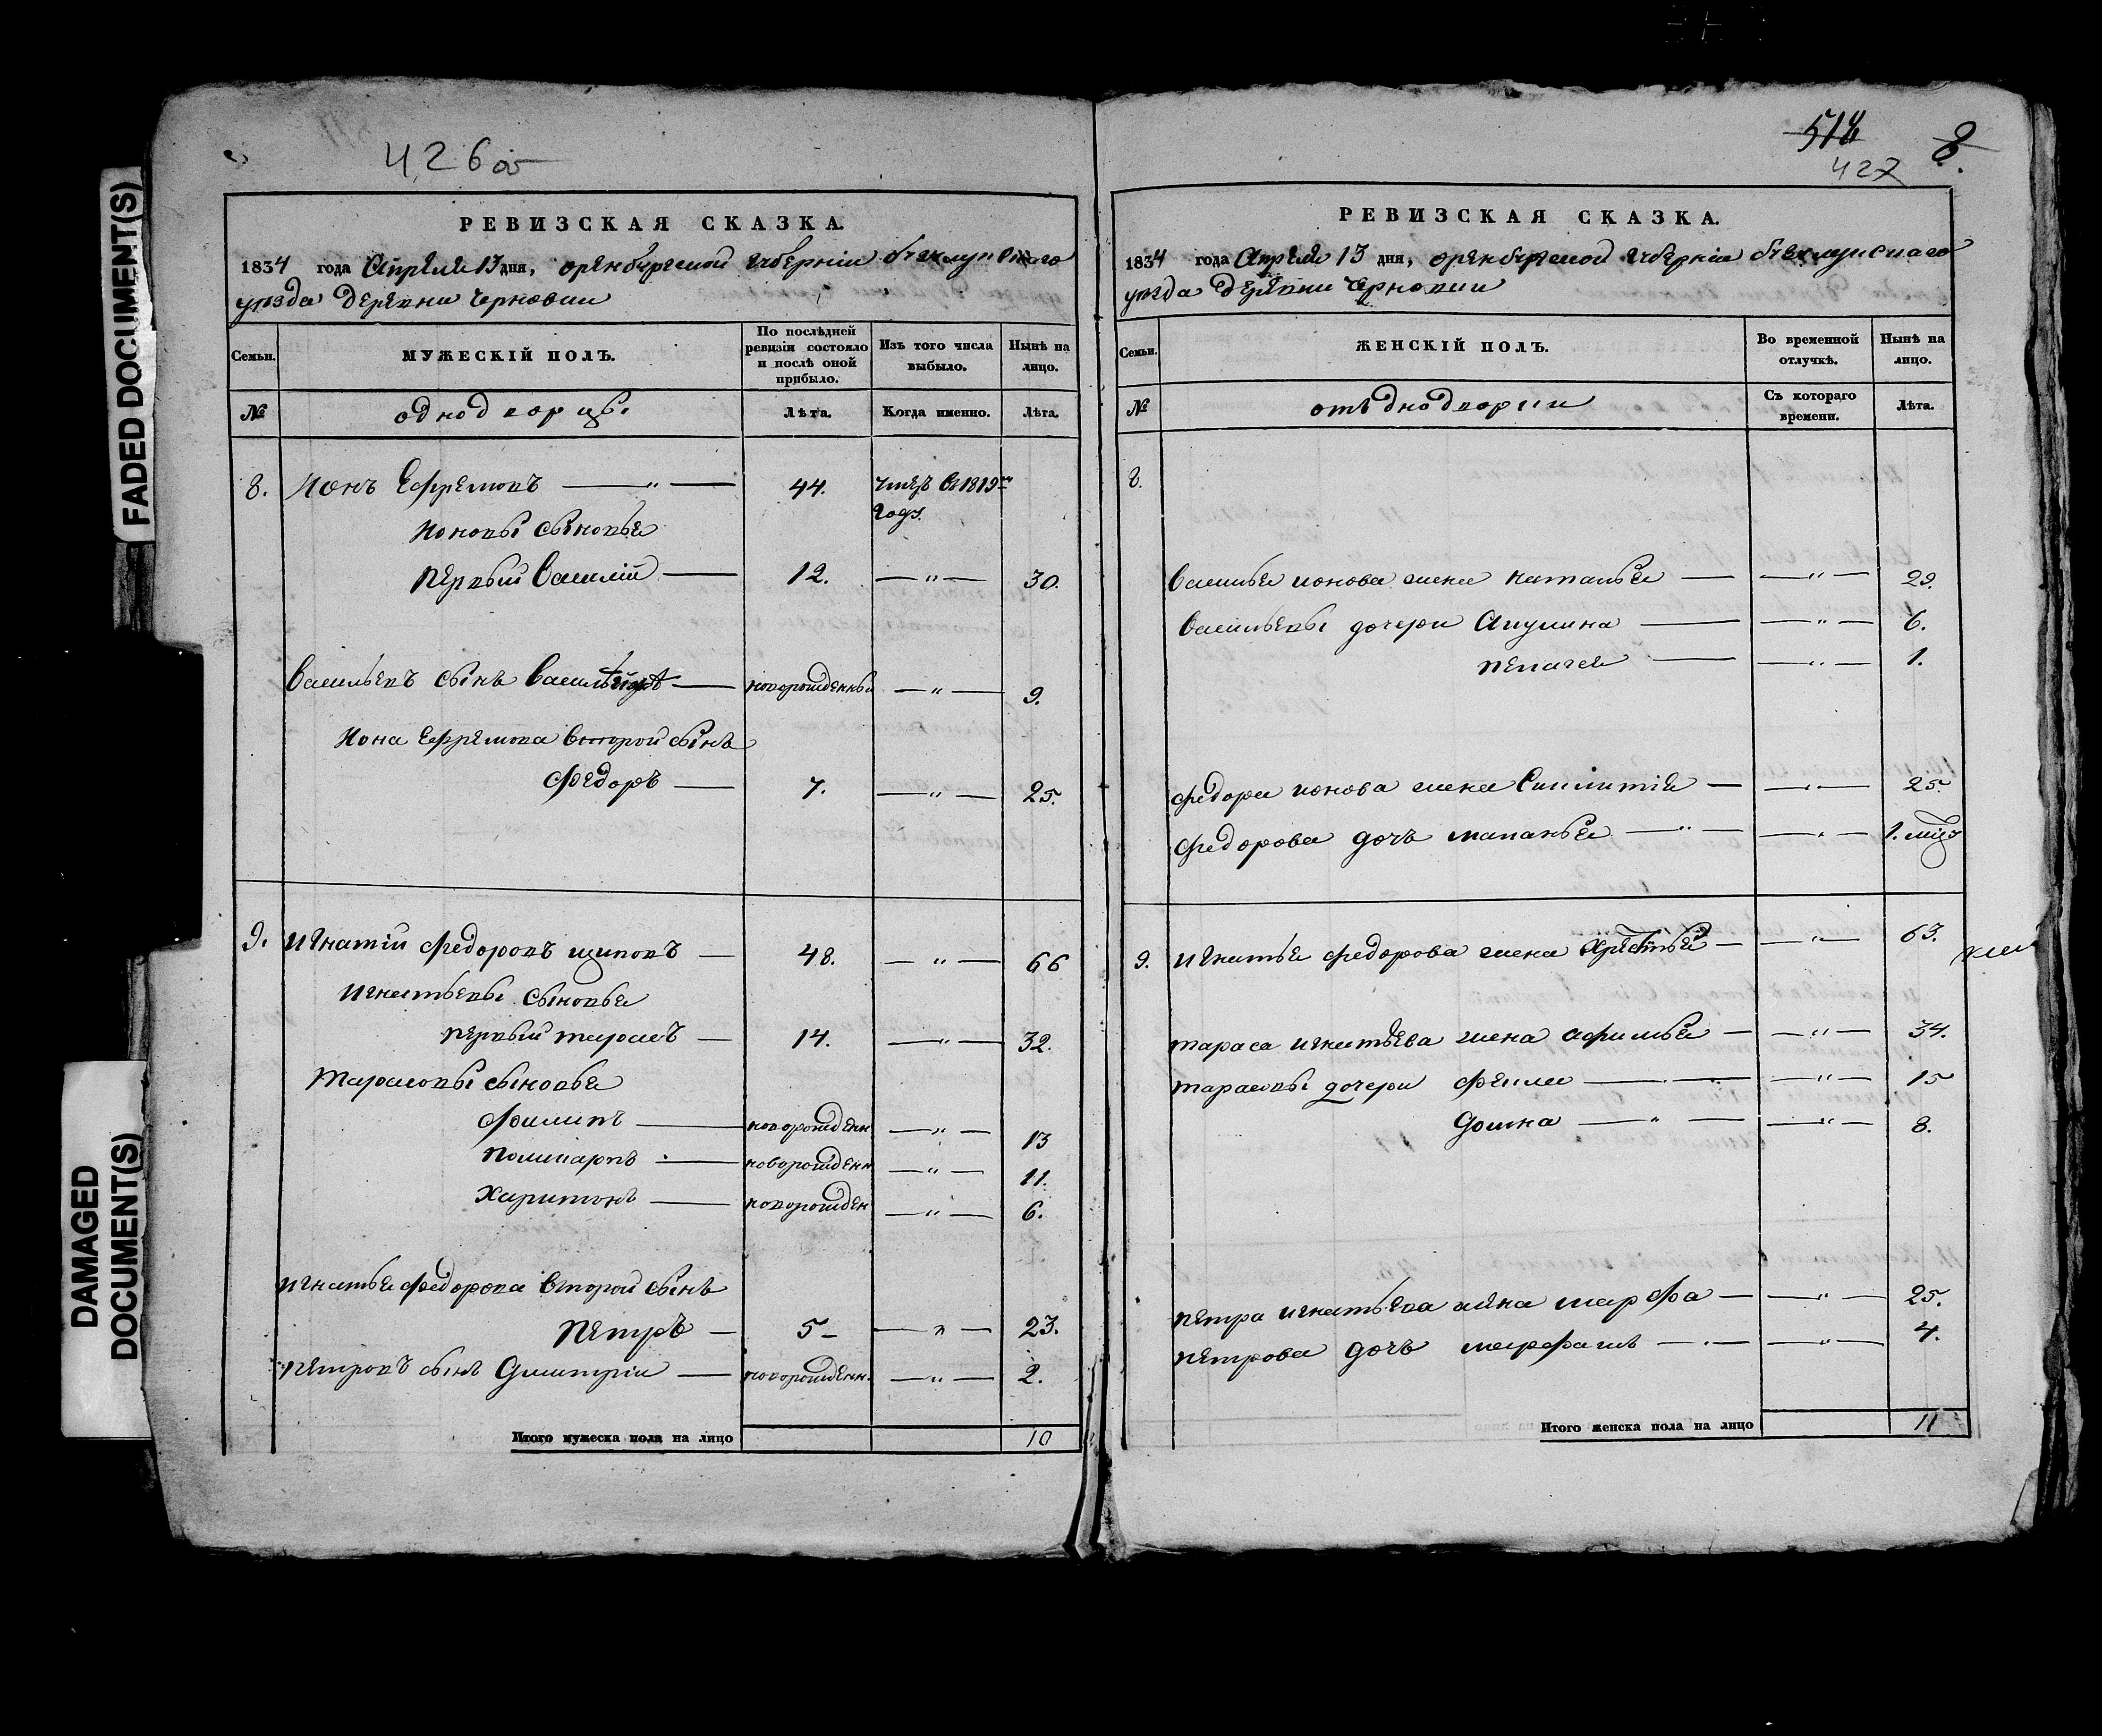 FADED DOCUMENT(S)
DAMAGED
DOCUMENT(S)
426об
РЕВИЗСКАЯ СКАЗКА.
1834 года Апреля 13 дня, оренбургской губернии бугульминского
уезда деревни Черновки
Семьи.
МУЖЕСКІЙ ПОЛЪ.
По послѣдней ревизіи состояло и послѣ оной прибыло.
Изъ того числа выбыло.
Нынѣ на лицо.
№
однодворцы
Лѣта.
Когда именно.
Лѣта.
8. Ионъ Ефремовъ — " — 44. умеръ въ 1819м
году.
Ионовы сыновья
первый василій — 12. — " — 30.
васильевъ сынъ — новорожденный — " — 9.
Иона Ефремова второй сынъ
Федоръ — 7. — " — 25.
9. игнатій федоровъ щиповъ — 48. — " — 66
игнатьевы сыновья
первый тарасъ — 14. — " — 32.
тарасовы сыновья
филипъ — новорожденн — " — 13
поликарпъ — новорожденн — " — 11.
харитонъ — новорожден — " — 6.
игнатья федорова второй сынъ
петръ — 5 — " — 23.
петровъ сынъ дмитрій — новорожденн. — " — 2.
Итого мужеска пола на лицо 10
518
427
8.
РЕВИЗСКАЯ СКАЗКА.
1834 года Апреля 13 дня, оренбургской губерніи бугульминского
уезда деревни Черновки
Семьи.
ЖЕНСКІЙ ПОЛЪ.
Во временной отлучкѣ.
Нынѣ на лицо.
№
Съ котораго времени.
Лѣта.
8.
василья ионова жена наталья — — " — 29.
васильевы дочери Акулина — — " — 6.
пелагея — — " — 1.
федора ионова жена — — " — 25.
федорова дочь маланья — " — — " — 1. мцъ
9. игнатья федорова жена христинья — — " — 63.
тараса игнатьева жена афимья — — " — 34.
тарасовы дочери фекла — — " — 15
домна — " — — " — 8.
петра игнатьева жена марфа — — " — 25.
петрова дочь — — " — 4.
Итого женска пола на лицо 11